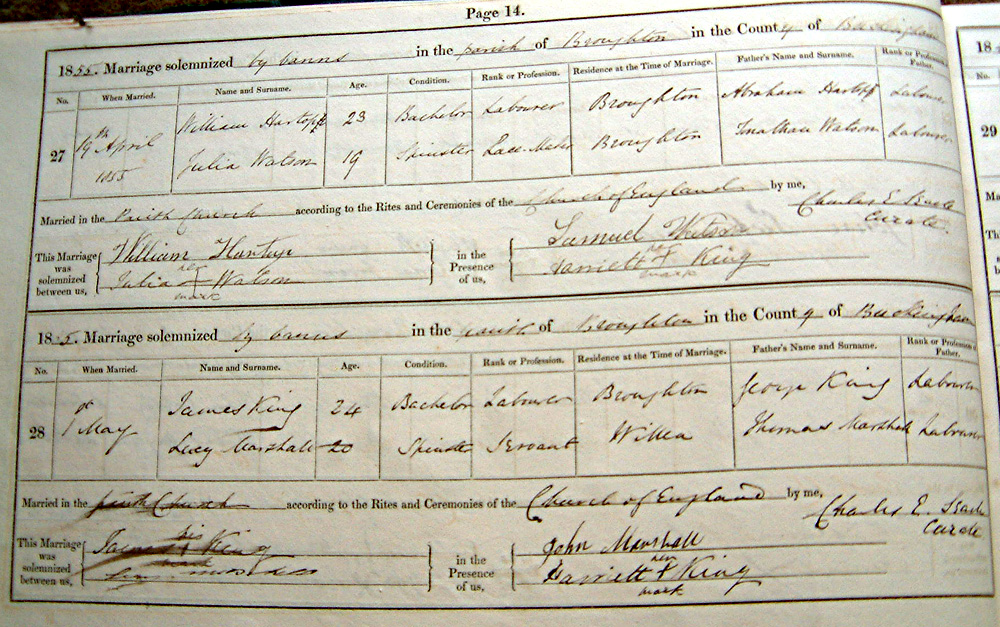 Page 14.
1855. Marriage solemnized by banns in the parish of Broughton in the County of Buckingham
No. When Married. Name and Surname. Age. Condition. Rank or Profession. Residence at the Time of Marriage. Father's Name and Surname. Rank or Profession of Father.
27 19th April 1855 William Hartopp 23 Bachelor Labourer Broughton Abraham Hartopp Labourer
Julia Watson 19 Spinster Lace Maker Broughton Jonathan Watson Labourer
Married in the Parish Church according to the Rites and Ceremonies of the Church of England by me,
Charles E. Curate.
This Marriage was solemnized between us, William Hartup in the Presence of us, Samuel Watson
Julia her mark Watson Harriett her mark King
1855. Marriage solemnized by banns in the parish of Broughton in the County of Buckingham
No. When Married. Name and Surname. Age. Condition. Rank or Profession. Residence at the Time of Marriage. Father's Name and Surname. Rank or Profession of Father.
28 May James King 24 Bachelor Labourer Broughton George King Labourer
Lucy Marshall 20 Spinster Servant Willen Thomas Marshall Labourer
Married in the parish Church according to the Rites and Ceremonies of the Church of England by me,
Charles E. Curate
This Marriage was solemnized between us, James his mark King in the Presence of us, John Marshall
Harriett her mark King
29